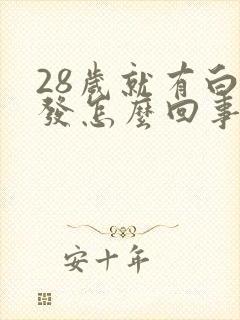 28歲就有白
發怎麼回事
安十年